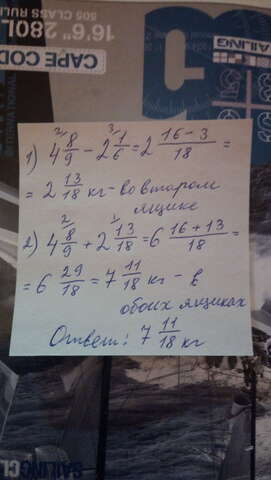 CAPE COD
16'6" 280L
505 CLASS RULI
SAILING
1) 4 8/9 - 2 1/6 = 2 (16 - 3)/18 =
= 2 13/18 кг - во втором
ящике
2) 4 8/9 + 2 13/18 = 6 (16 + 13)/18 =
= 6 29/18 = 7 11/18 кг - в
обоих ящиках
Ответ: 7 11/18 кг
SAILING